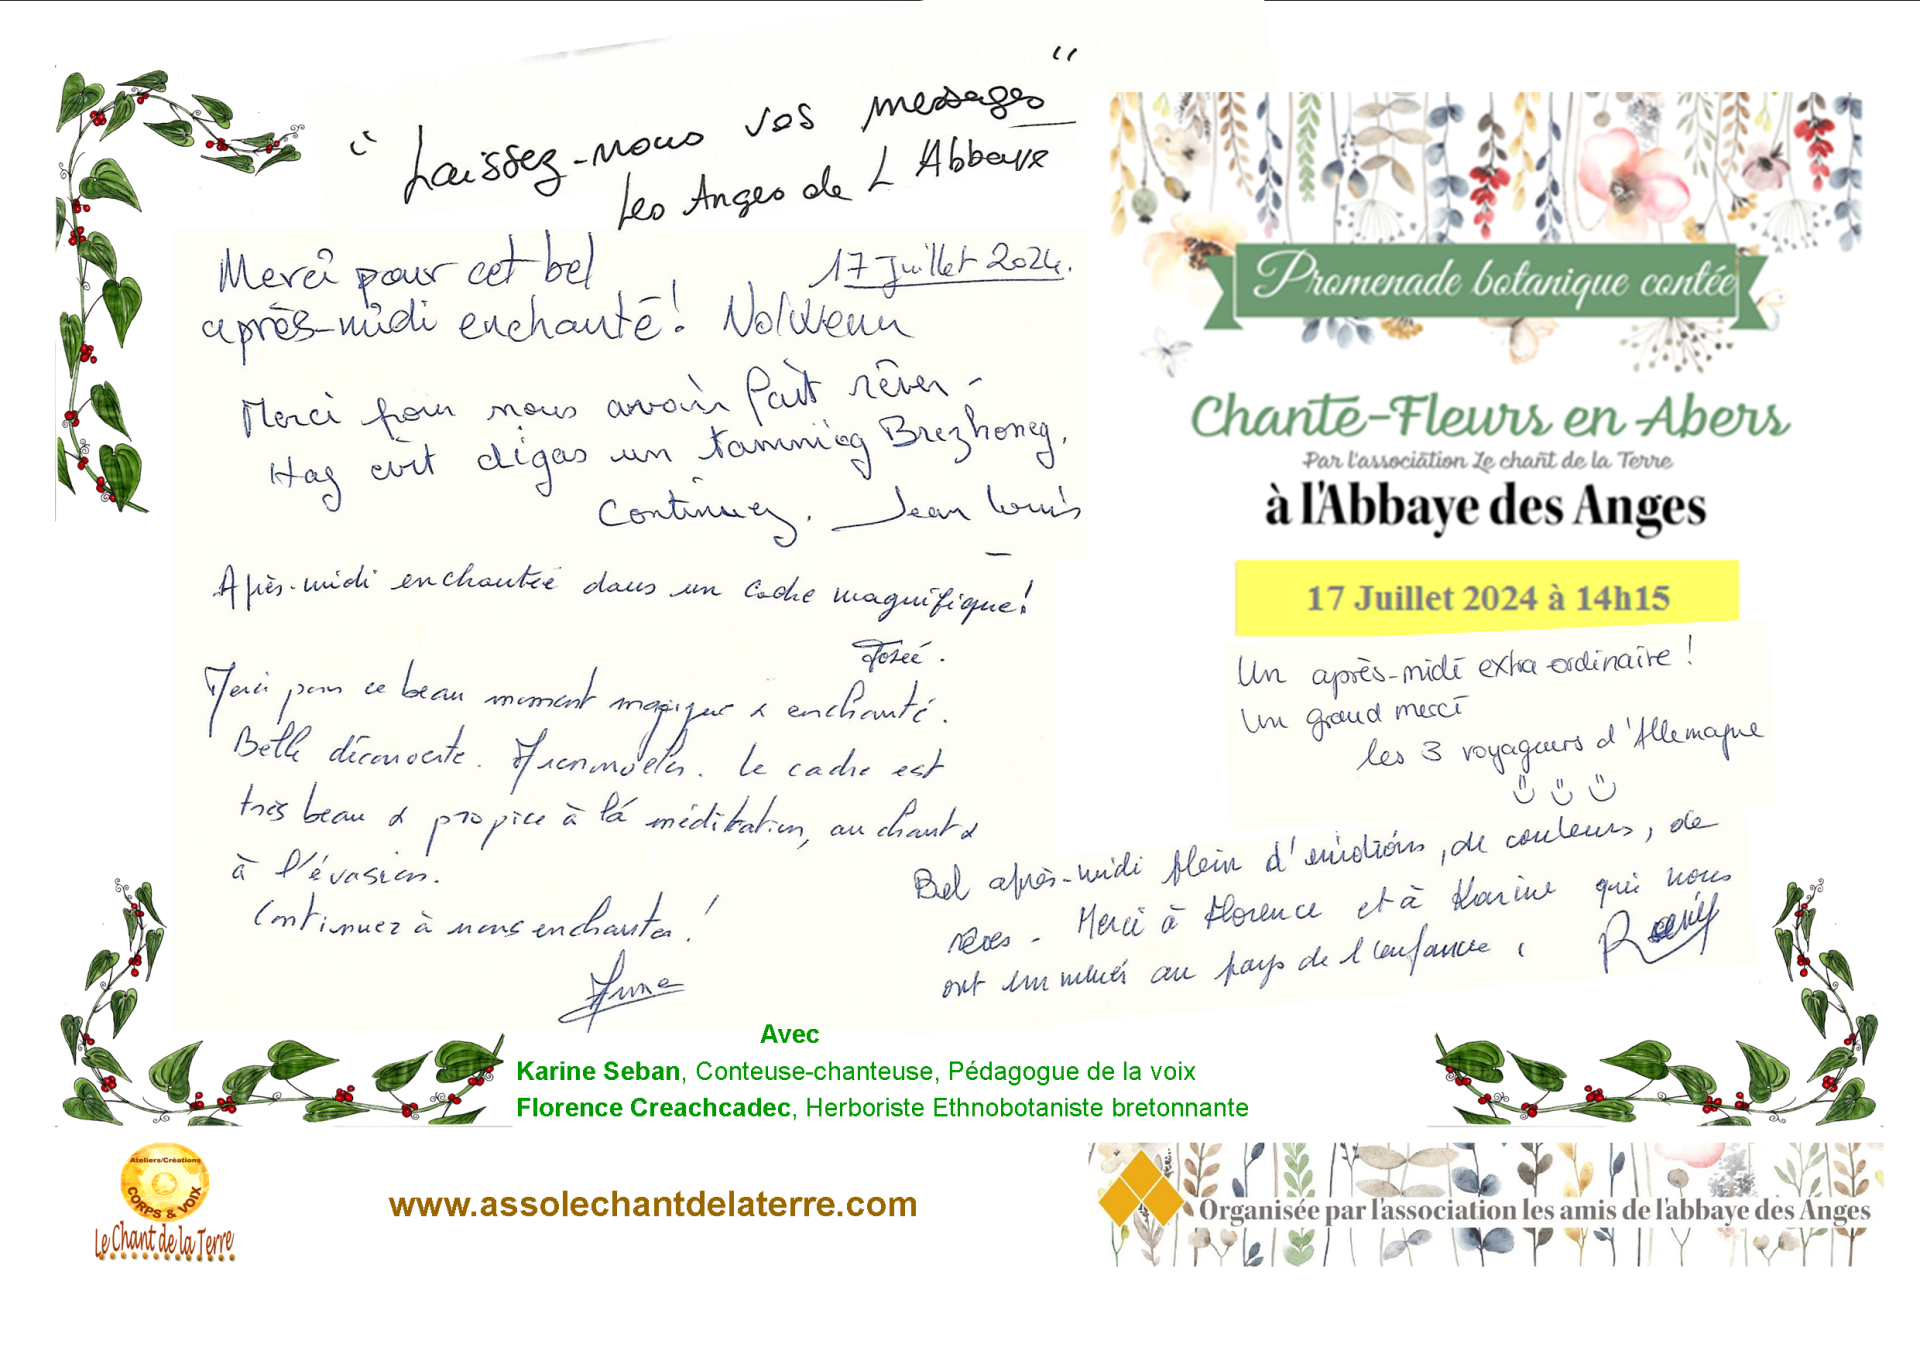 " Laissez-nous vos messages "
Les Anges de L Abbaye
17 Juillet 2024.
Merci pour cet bel
après-midi enchanté! Nolwenn
Merci pour nous avoir fait rêver -
Hag evit digas un tammig Brezhoneg.
Continuez. Jean Louis
Après-midi enchantée dans un cadre magnifique!
Josée.
Merci pour ce beau moment magique & enchanté.
Belle découverte. le cadre est
très beau & propice à la méditation, au chant &
à l'évasion.
Continuez à nous enchanter!
Anne
Promenade botanique contée
Chante-Fleurs en Abers
Par l'association Le chant de la Terre
à l'Abbaye des Anges
17 Juillet 2024 à 14h15
Un après-midi extra-ordinaire!
Un grand merci
les 3 voyageurs d'Allemagne
Bel après-midi plein d'émotions, de couleurs, de
rêves - Merci à Florence et à Karine qui nous
ont emmenés au pays de l'enfance.
Avec
Karine Seban, Conteuse-chanteuse, Pédagogue de la voix
Florence Creachcadec, Herboriste Ethnobotaniste bretonnante
Ateliers/Créations
CORPS & VOIX
Le Chant de la Terre
www.assolechantdelaterre.com
Organisée par l'association les amis de l'abbaye des Anges